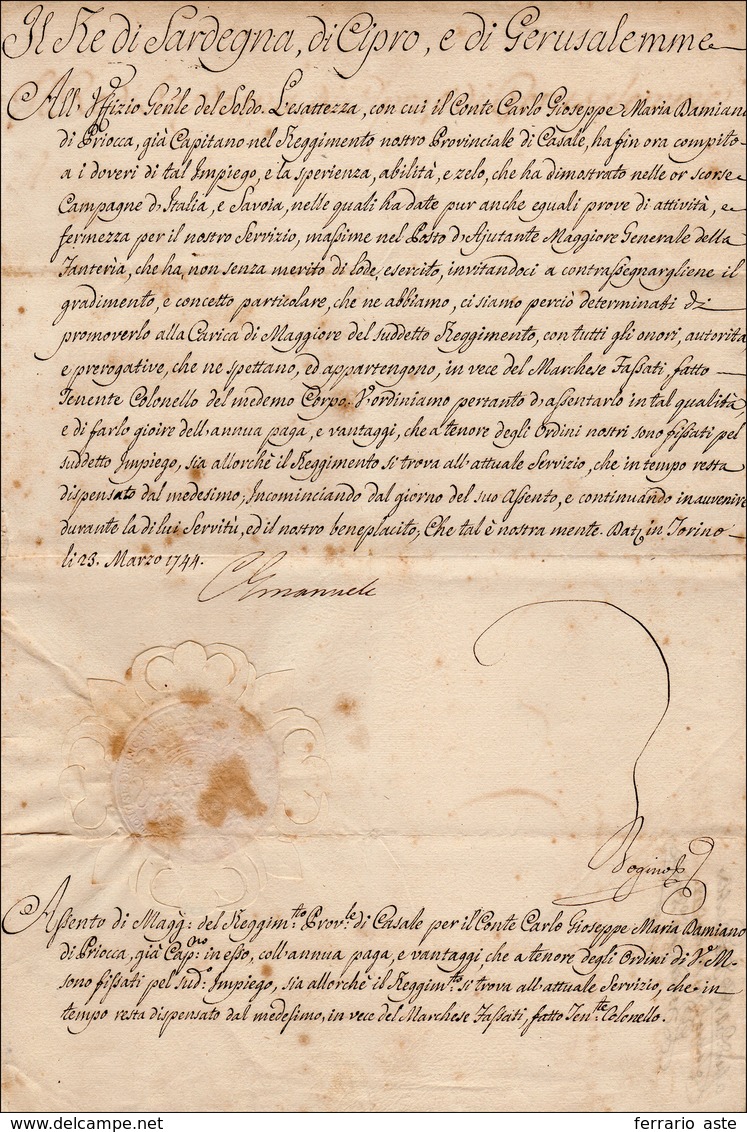 Il Re di Sardegna, di Cipro, e di Gerusalemme
All'Uffizio Gen'le del Soldo. L'esattezza, con cui il Conte Carlo Gioseppe Maria Damiano
di Priocca, già Capitano nel Reggimento nostro Provinciale di Casale, ha fin ora compito
a i doveri di tal Impiego, e la sperienza, abilità, e zelo, che ha dimostrato nelle or scorse
Campagne d'Italia, e Savoia, nelle quali ha date pur anche eguali prove di attività, e
fermezza per il nostro Servizio, massime nel Posto d'Ajutante Maggiore Generale della
Fanterìa, che ha, non senza merito di lode, esercito, invitandoci a contrassegnargliene il
gradimento, e concetto particolare, che ne abbiamo, ci siamo perciò determinati di
promoverlo alla Carica di Maggiore del suddetto Reggimento, con tutti gli onori, autorità
e prerogative, che ne spettano, ed appartengono, in vece del Marchese Fassati, fatto
Tenente Colonello del medemo Corpo. V'ordiniamo pertanto d'assentarlo in tal qualità,
e di farlo gioire dell'annua paga, e vantaggi, che a tenore degli Ordini nostri sono fissati pel
suddetto Impiego, sia allorchè il Reggimento si trova all'attuale Servizio, che in tempo resta
dispensato dal medesimo, Incominciando dal giorno del suo Assento, e continuando in auvenire
durante la di lui Servitù, ed il nostro beneplacito; Che tal è nostra mente. Dat. in Torino
li 23. Marzo 1744.
CEmanuele
Bogino
Assento di Magg.e del Reggim.to Prov.le di Casale per il Conte Carlo Gioseppe Maria Damiano
di Priocca, già Cap.no in esso, coll'annua paga, e vantaggi che a tenore degli Ordini di V.M.
sono fissati pel sud.o Impiego, sia allorchè il Reggim.to si trova all'attuale Servizio, che in
tempo resta dispensato dal medesimo, in vece del Marchese Fassati, fatto Ten.te Colonello.
ferrario aste